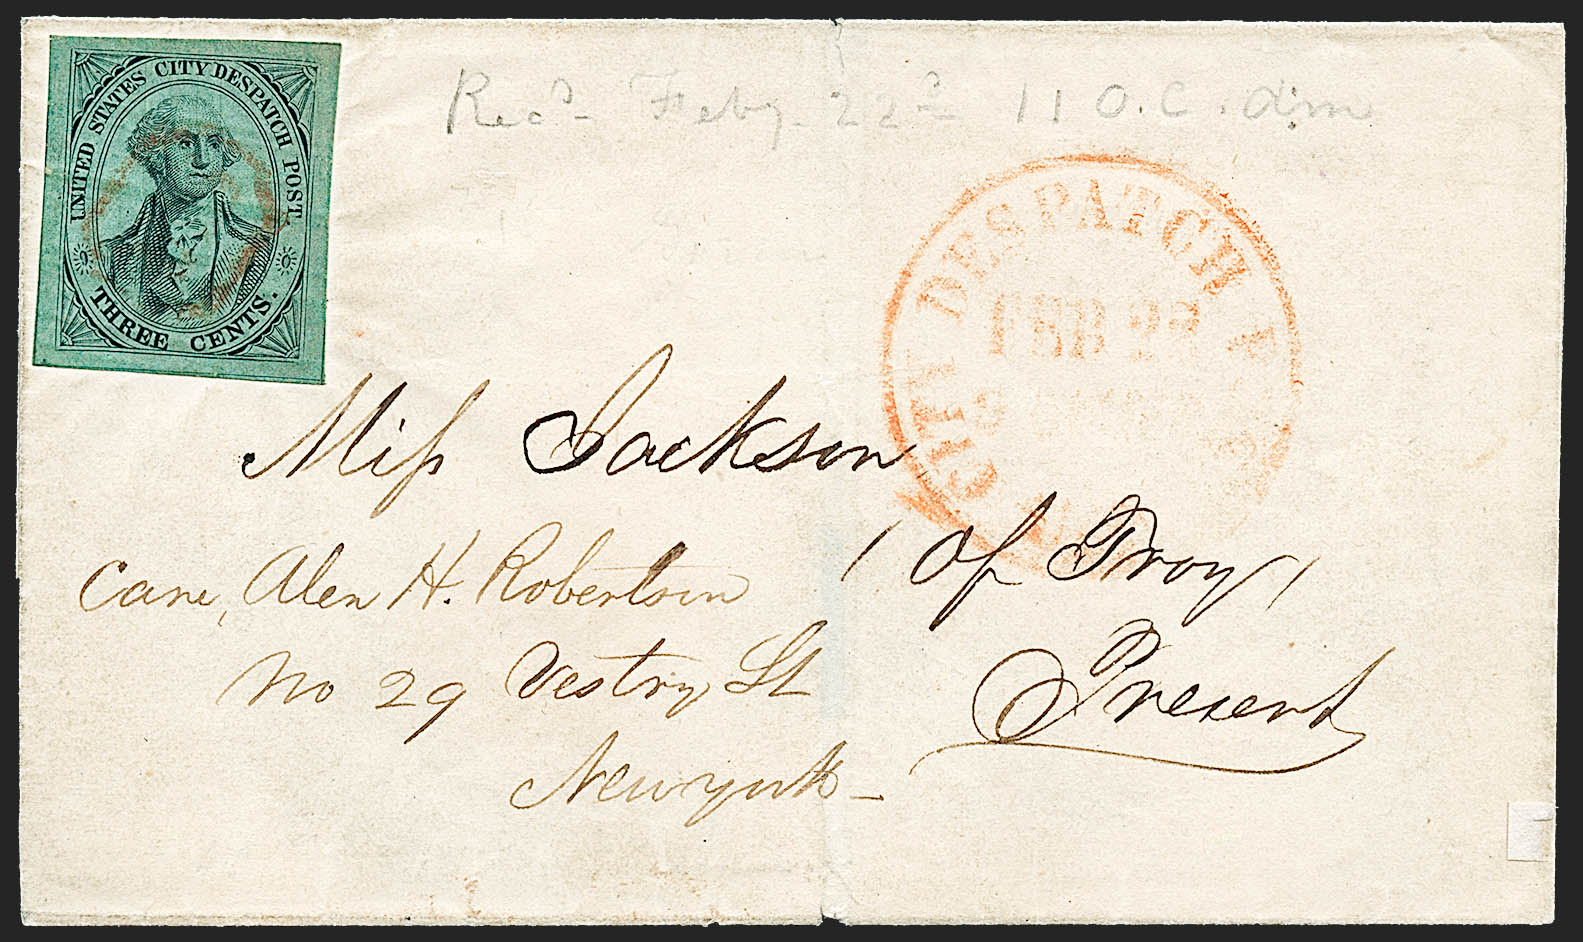 UNITED STATES CITY DESPATCH POST
THREE CENTS.
Rec.d Feby. 22d 11 O.C.
CITY DESPATCH P
FEB 22
Miss Jackson
(of Troy)
Care, Alex H. Robertson
No 29 Vestry St
Present
New york